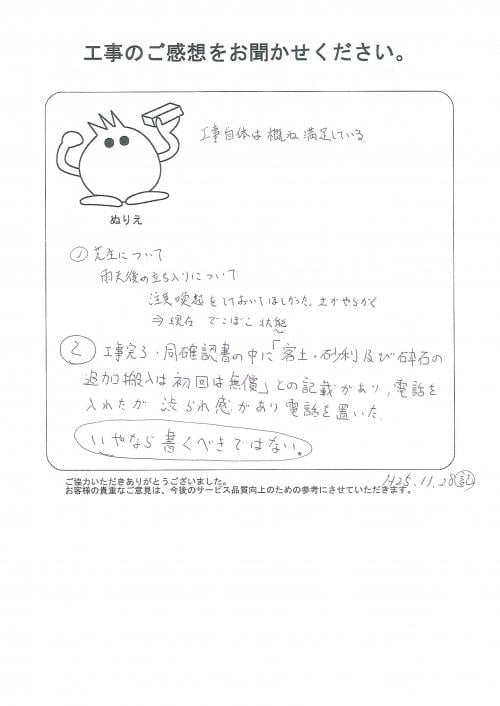 工事のご感想をお聞かせください。
ぬりえ
工事自体は概ね満足している
① 芝生について
雨天後の立ち入りについて
注意喚起をしておいてほしかった。土がやらかく
⇒現在 でこぼこ状態
② 工事完了・同確認書の中に「客土・砂利及び砕石の
追加搬入は初回は無償」との記載があり、電話を
入れたが渋られ感があり電話を置いた。
いやなら書くべきではない。
ご協力いただきありがとうございました。
お客様の貴重なご意見は、今後のサービス品質向上のための参考にさせていただきます。
H25.11.28 記